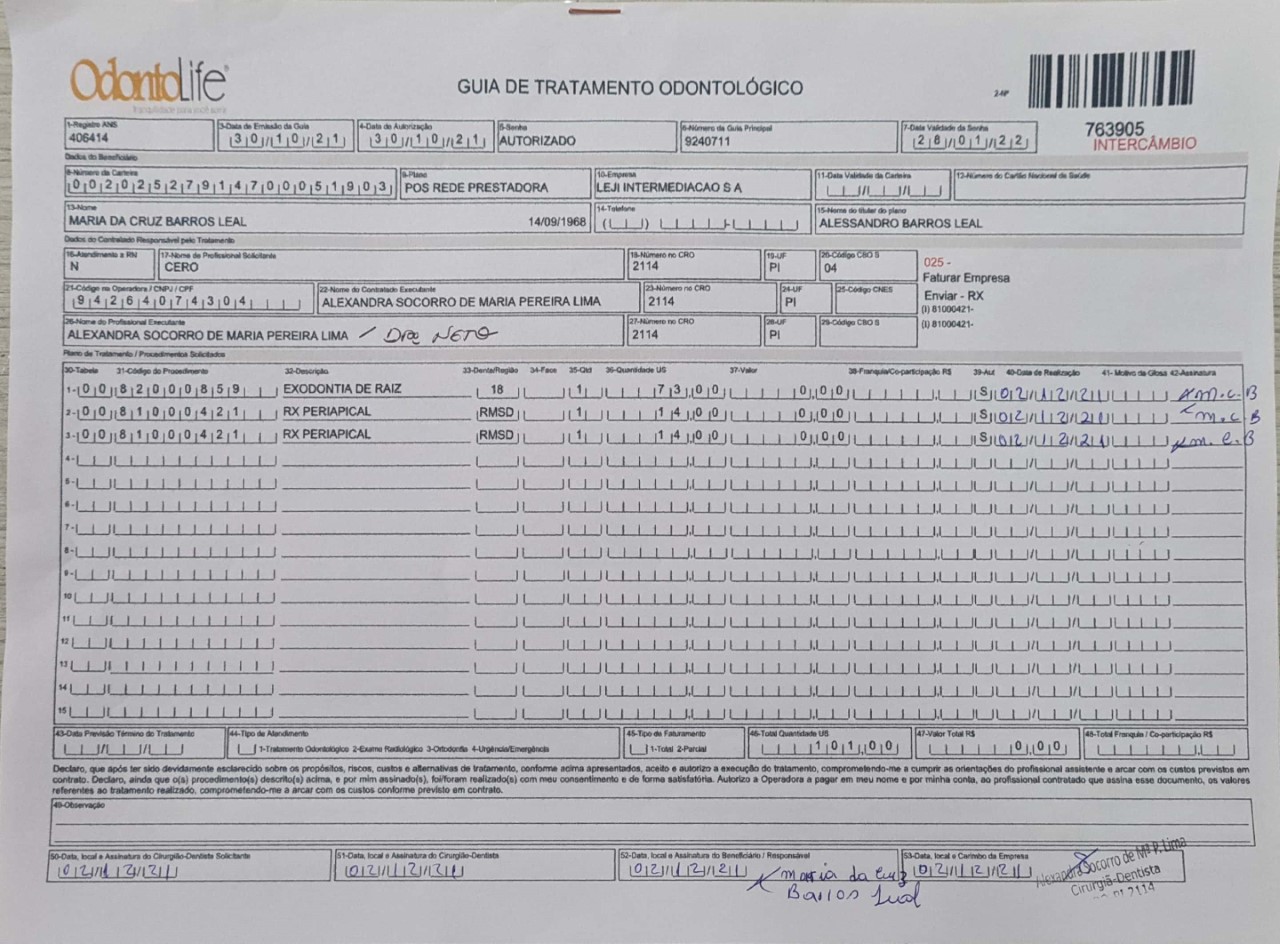 OdontoLife®
Tranquilidade para você sorrir
GUIA DE TRATAMENTO ODONTOLÓGICO
24P
763905
INTERCÂMBIO
1-Registro ANS 3-Data de Emissão da Guia 4-Data de Autorização 5-Senha 6-Número da Guia Principal 7-Data Validade da Senha
406414 30/10/21 30/10/21 AUTORIZADO 9240711 28/01/22
Dados do Beneficiário
8-Número da Carteira 9-Plano 10-Empresa 11-Data Validade da Carteira 12-Número do Cartão Nacional de Saúde
00202527914700051903 POS REDE PRESTADORA LEJI INTERMEDIACAO S A
13-Nome 14-Telefone 15-Nome do titular do plano
MARIA DA CRUZ BARROS LEAL 14/09/1968 ALESSANDRO BARROS LEAL
Dados do Contratado Responsável pelo Tratamento
16-Atendimento a RN 17-Nome do Profissional Solicitante 18-Número no CRO 19-UF 20-Código CBO S
N CERO 2114 PI 04
025 -
Faturar Empresa
Enviar - RX
(I) 81000421-
(I) 81000421-
21-Código na Operadora / CNPJ / CPF 22-Nome do Contratado Executante 23-Número no CRO 24-UF 25-Código CNES
94264074304 ALEXANDRA SOCORRO DE MARIA PEREIRA LIMA 2114 PI
26-Nome do Profissional Executante 27-Número no CRO 28-UF 29-Código CBO S
ALEXANDRA SOCORRO DE MARIA PEREIRA LIMA / Dra NETO 2114 PI
Plano de Tratamento / Procedimentos Solicitados
30-Tabela 31-Código do Procedimento 32-Descrição 33-Dente/Região 34-Face 35-Qtd 36-Quantidade US 37-Valor 38-Franquia/Co-participação R$ 39-Aut 40-Data de Realização 41- Motivo da Glosa 42-Assinatura
1-00 82000859 EXODONTIA DE RAIZ 18 1 73,00 0,00 S 02/12/21 M.C.B
2-00 81000421 RX PERIAPICAL RMSD 1 14,00 0,00 S 02/12/21 M.C.B
3-00 81000421 RX PERIAPICAL RMSD 1 14,00 0,00 S 02/12/21 M.C.B
4-
5-
6-
7-
8-
9-
10
11
12
13
14
15
43-Data Previsão Término do Tratamento 44-Tipo de Atendimento 45-Tipo de Faturamento 46-Total Quantidade US 47-Valor Total R$ 48-Total Franquia / Co-participação R$
1-Tratamento Odontológico 2-Exame Radiológico 3-Ortodontia 4-Urgência/Emergência 1-Total 2-Parcial 101,00 0,00
Declaro, que após ter sido devidamente esclarecido sobre os propósitos, riscos, custos e alternativas de tratamento, conforme acima apresentados, aceito e autorizo a execução do tratamento, comprometendo-me a cumprir as orientações do profissional assistente e arcar com os custos previstos em
contrato. Declaro, ainda que o(s) procedimento(s) descrito(s) acima, e por mim assinado(s), foi/foram realizado(s) com meu consentimento e de forma satisfatória. Autorizo a Operadora a pagar em meu nome e por minha conta, ao profissional contratado que assina esse documento, os valores
referentes ao tratamento realizado, comprometendo-me a arcar com os custos conforme previsto em contrato.
49-Observação
50-Data, local e Assinatura do Cirurgião-Dentista Solicitante 51-Data, local e Assinatura do Cirurgião-Dentista 52-Data, local e Assinatura do Beneficiário / Responsável 53-Data, local e Carimbo da Empresa
02/12/21 02/12/21 02/12/21 02/12/21
Maria da Cruz
Barros Leal
Alexandra Socorro de Mª P. Lima
Cirurgiã-Dentista
2114